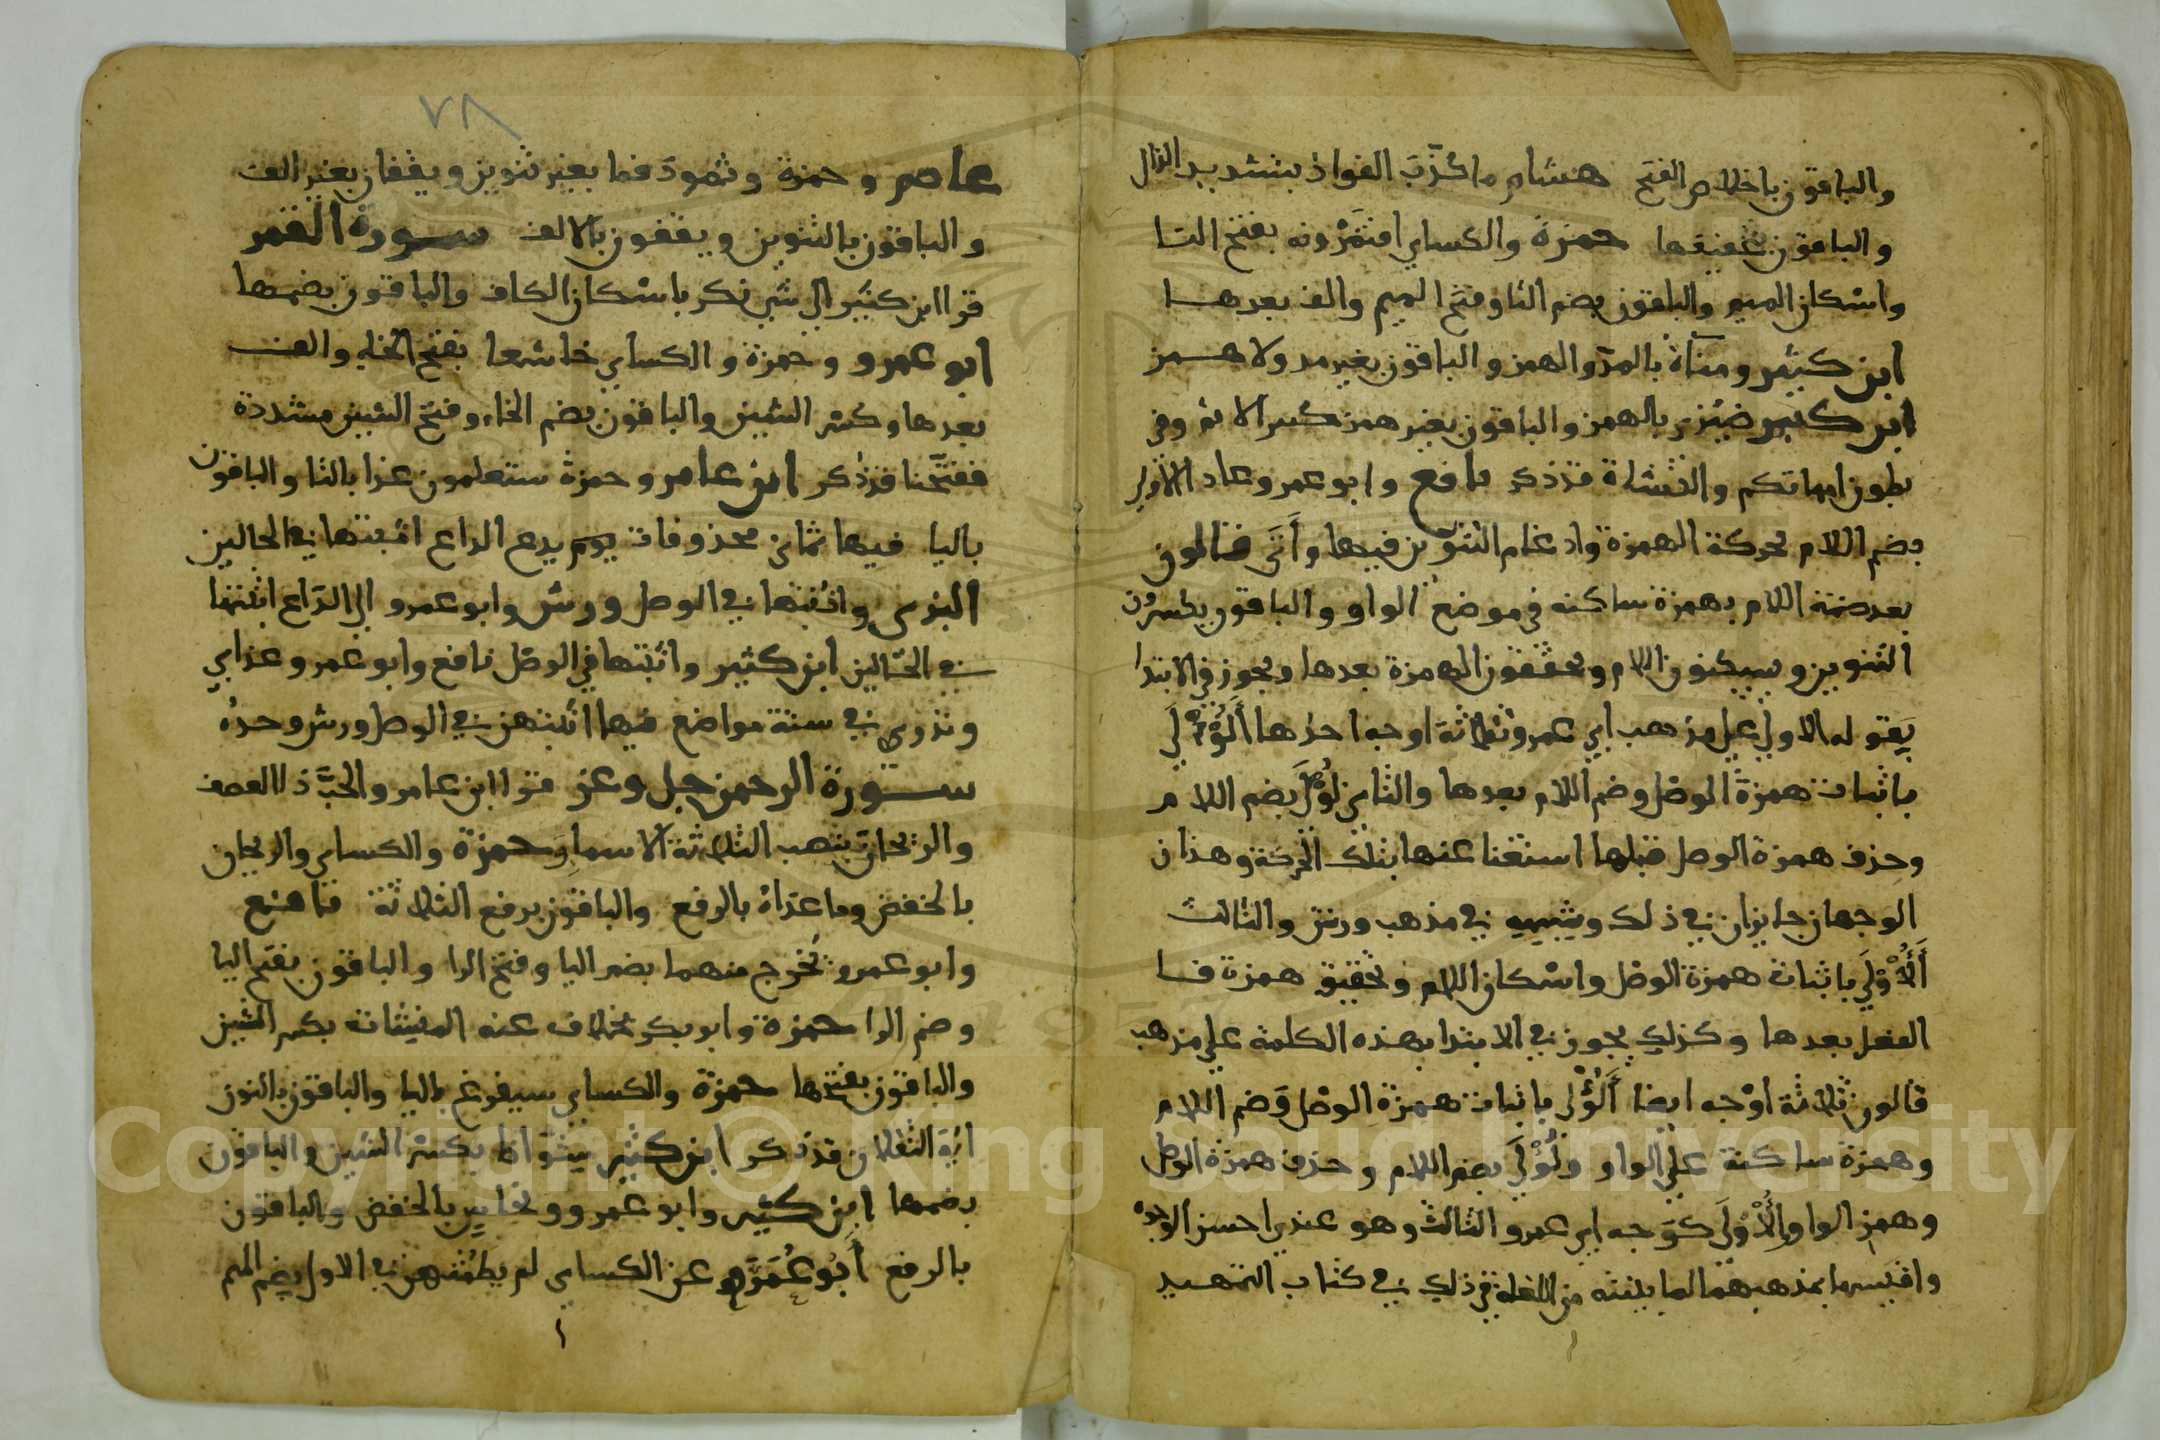 والباقون باخلاص الفتح هشام ما كذّب الفواد بتشديد الذال
والباقون بتخفيفها حمزة والكساي افتمرونه بفتح التا
واسكان الميم والباقون بضم التا وفتح الميم والف بعدها
ابن كثير ومناة بالمد والهمز والباقون بغير مد ولا همز
ابن كثير ضيزى بالهمز والباقون بغير همز كبير الاثم وفي
بطون امهاتكم والنشاة قد ذكر نافع وابو عمرو عاد الاولى
بضم اللام بحركة الهمزة وادغام التنوين فيها وأتى قالون
بعد ضمة اللام بهمزة ساكنه في موضع الواو والباقون يكسرون
التنوين ويسكنون اللام ويحققون الهمزة بعدها ويجوز في الابتدا
بقوله الاولى على مذهب ابي عمرو ثلاثة اوجه احدها ألولى
باثبات همزة الوصل وضم اللام بعدها والثاني لولى بضم اللام
وحذف همزة الوصل قبلها استغنا عنها بتلك الحركة وهذان
الوجهان جايزان في ذلك وشبهه في مذهب ورش والثالث
ألأولى باثبات همزة الوصل واسكان اللام وتحقيق همزة فا
الفعل بعدها وكذلك يجوز في الابتدا بهذه الكلمة على مذهب
قالون ثلاثة اوجه ايضا ألؤلى باثبات همزة الوصل وضم اللام
وهمزة ساكنة على الواو ولؤلى بضم اللام وحذف همزة الوصل
وهمز الواو والأولى كوجه ابي عمرو الثالث وهو عندي احسن الوجوه
واقيسها بمذهبهما لما بينته من العلة في ذلك في كتاب التمهيد
٧٨
عاصم وحمزة وثمود فما بغير تنوين ويقفان بغير الف
والباقون بالتنوين ويقفون بالالف سورة القمر
قرا ابن كثير الى شي نكر باسكان الكاف والباقون بضمها
ابو عمرو وحمزة والكساي خاشعا بفتح الخا والف
بعدها وكسر الشين والباقون بضم الخاء وفتح الشين مشددة
ففتحنا قد ذكر ابن عامر وحمزة ستعلمون غدا بالتا والباقون
باليا فيها ثماني محذوفات يوم يدع الداع اثبتها في الحالين
البزى واثبتها في الوصل ورش وابو عمرو الى الداع اثبتها
في الحالين ابن كثير واثبتها في الوصل نافع وابو عمرو وعذابي
ونذرى في ستة مواضع فيها اثبتهن في الوصل ورش وحده
سورة الرحمن جل وعز قرا ابن عامر والحبّ ذا العصف
والريحان بنصب الثلاثة الاسما وحمزة والكساي والريحان
بالخفض وما عداه بالرفع والباقون برفع الثلاثة نافع
وابو عمرو يخرج منهما بضم اليا وفتح الرا والباقون بفتح اليا
وضم الرا حمزة وابو بكر بخلاف عنه المنشيات بكسر الشين
والباقون بفتحها حمزة والكساي سيفرغ باليا والباقون بالنون
ايه الثقلان قد ذكر ابن كثير شواظ بكسر الشين والباقون
بضمها ابن كثير وابو عمرو ونحاس بالخفض والباقون
بالرفع أبو عمر عن الكساي لم يطمثهن في الاول بضم الميم
Copyright © King Saud University